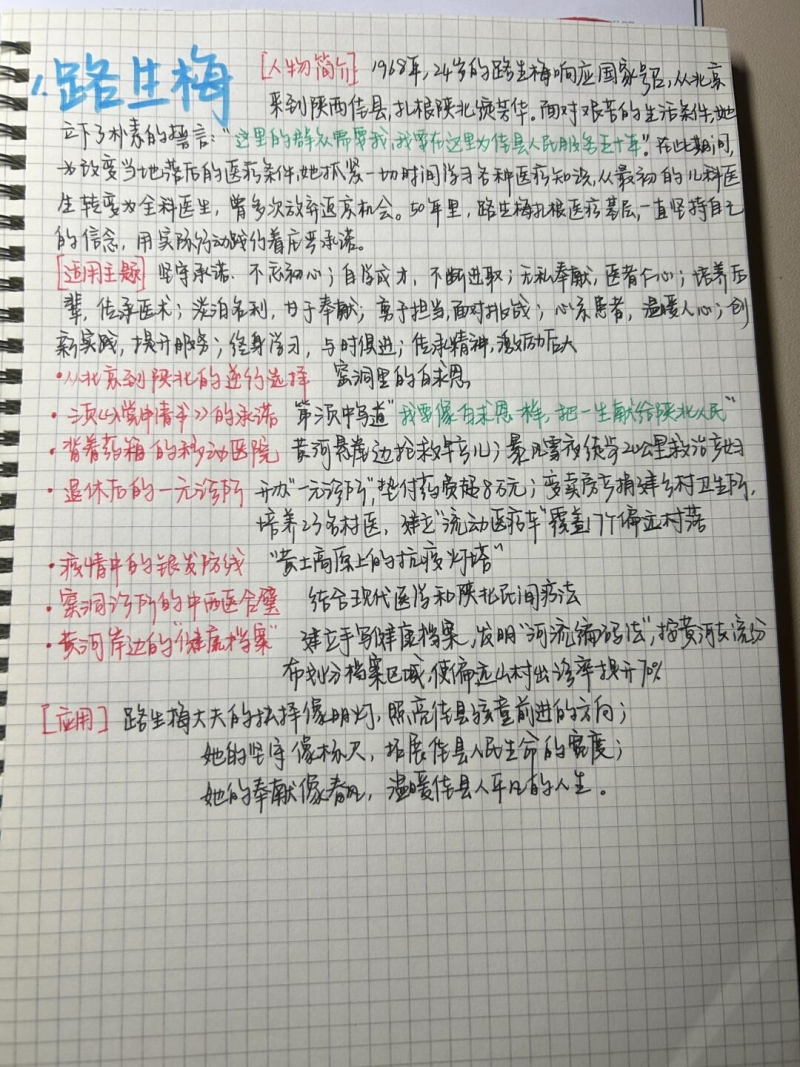 1.路生梅 [人物简介] 1968年,24岁的路生梅响应国家号召,从北京
来到陕西佳县,扎根陕北绽芳华。面对艰苦的生活条件,她
立下了朴素的誓言:"这里的群众需要我,我要在这里为佳县人民服务五十年"。在此期间,
为改变当地落后的医疗条件,她抓紧一切时间学习各种医疗知识,从最初的儿科医
生转变为全科医生,曾多次放弃返京机会。50年里,路生梅扎根医疗基层,一直坚持自己
的信念,用实际行动践约着庄严承诺。
[适用主题] 坚守承诺、不忘初心;自学成才,不断进取;无私奉献,医者仁心;培养后
辈,传承医术;淡泊名利,甘于奉献;勇于担当,面对挑战;心系患者,温暖人心;创
新实践,提升服务;终身学习,与时俱进;传承精神,激励后人
·从北京到陕北的逆行选择 窑洞里的白求恩
·三页《入党申请书》的承诺 第三页中写道"我要像白求恩一样,把一生献给陕北人民"
·背着药箱的移动医院 黄河悬崖边抢救早产儿;暴风雪夜徒步20公里救治产妇
·退休后的一元诊所 开办"一元诊所",垫付药费超8万元;变卖房产捐建乡村卫生所,
培养23名村医,建立"流动医疗车"覆盖17个偏远村落
·疫情中的银发防线 "黄土高原上的抗疫灯塔"
·窑洞诊所的中西医合璧 结合现代医学和陕北民间疗法
·黄河岸边的"健康档案" 建立手写健康档案,发明"河流编码法",按黄河支流分
布划分档案区域,使偏远山村出诊率提升70%
[应用] 路生梅大夫的抉择像明灯,照亮佳县孩童前进的方向;
她的坚守像标尺,拓展佳县人民生命的宽度;
她的奉献像春风,温暖佳县人平凡的人生。